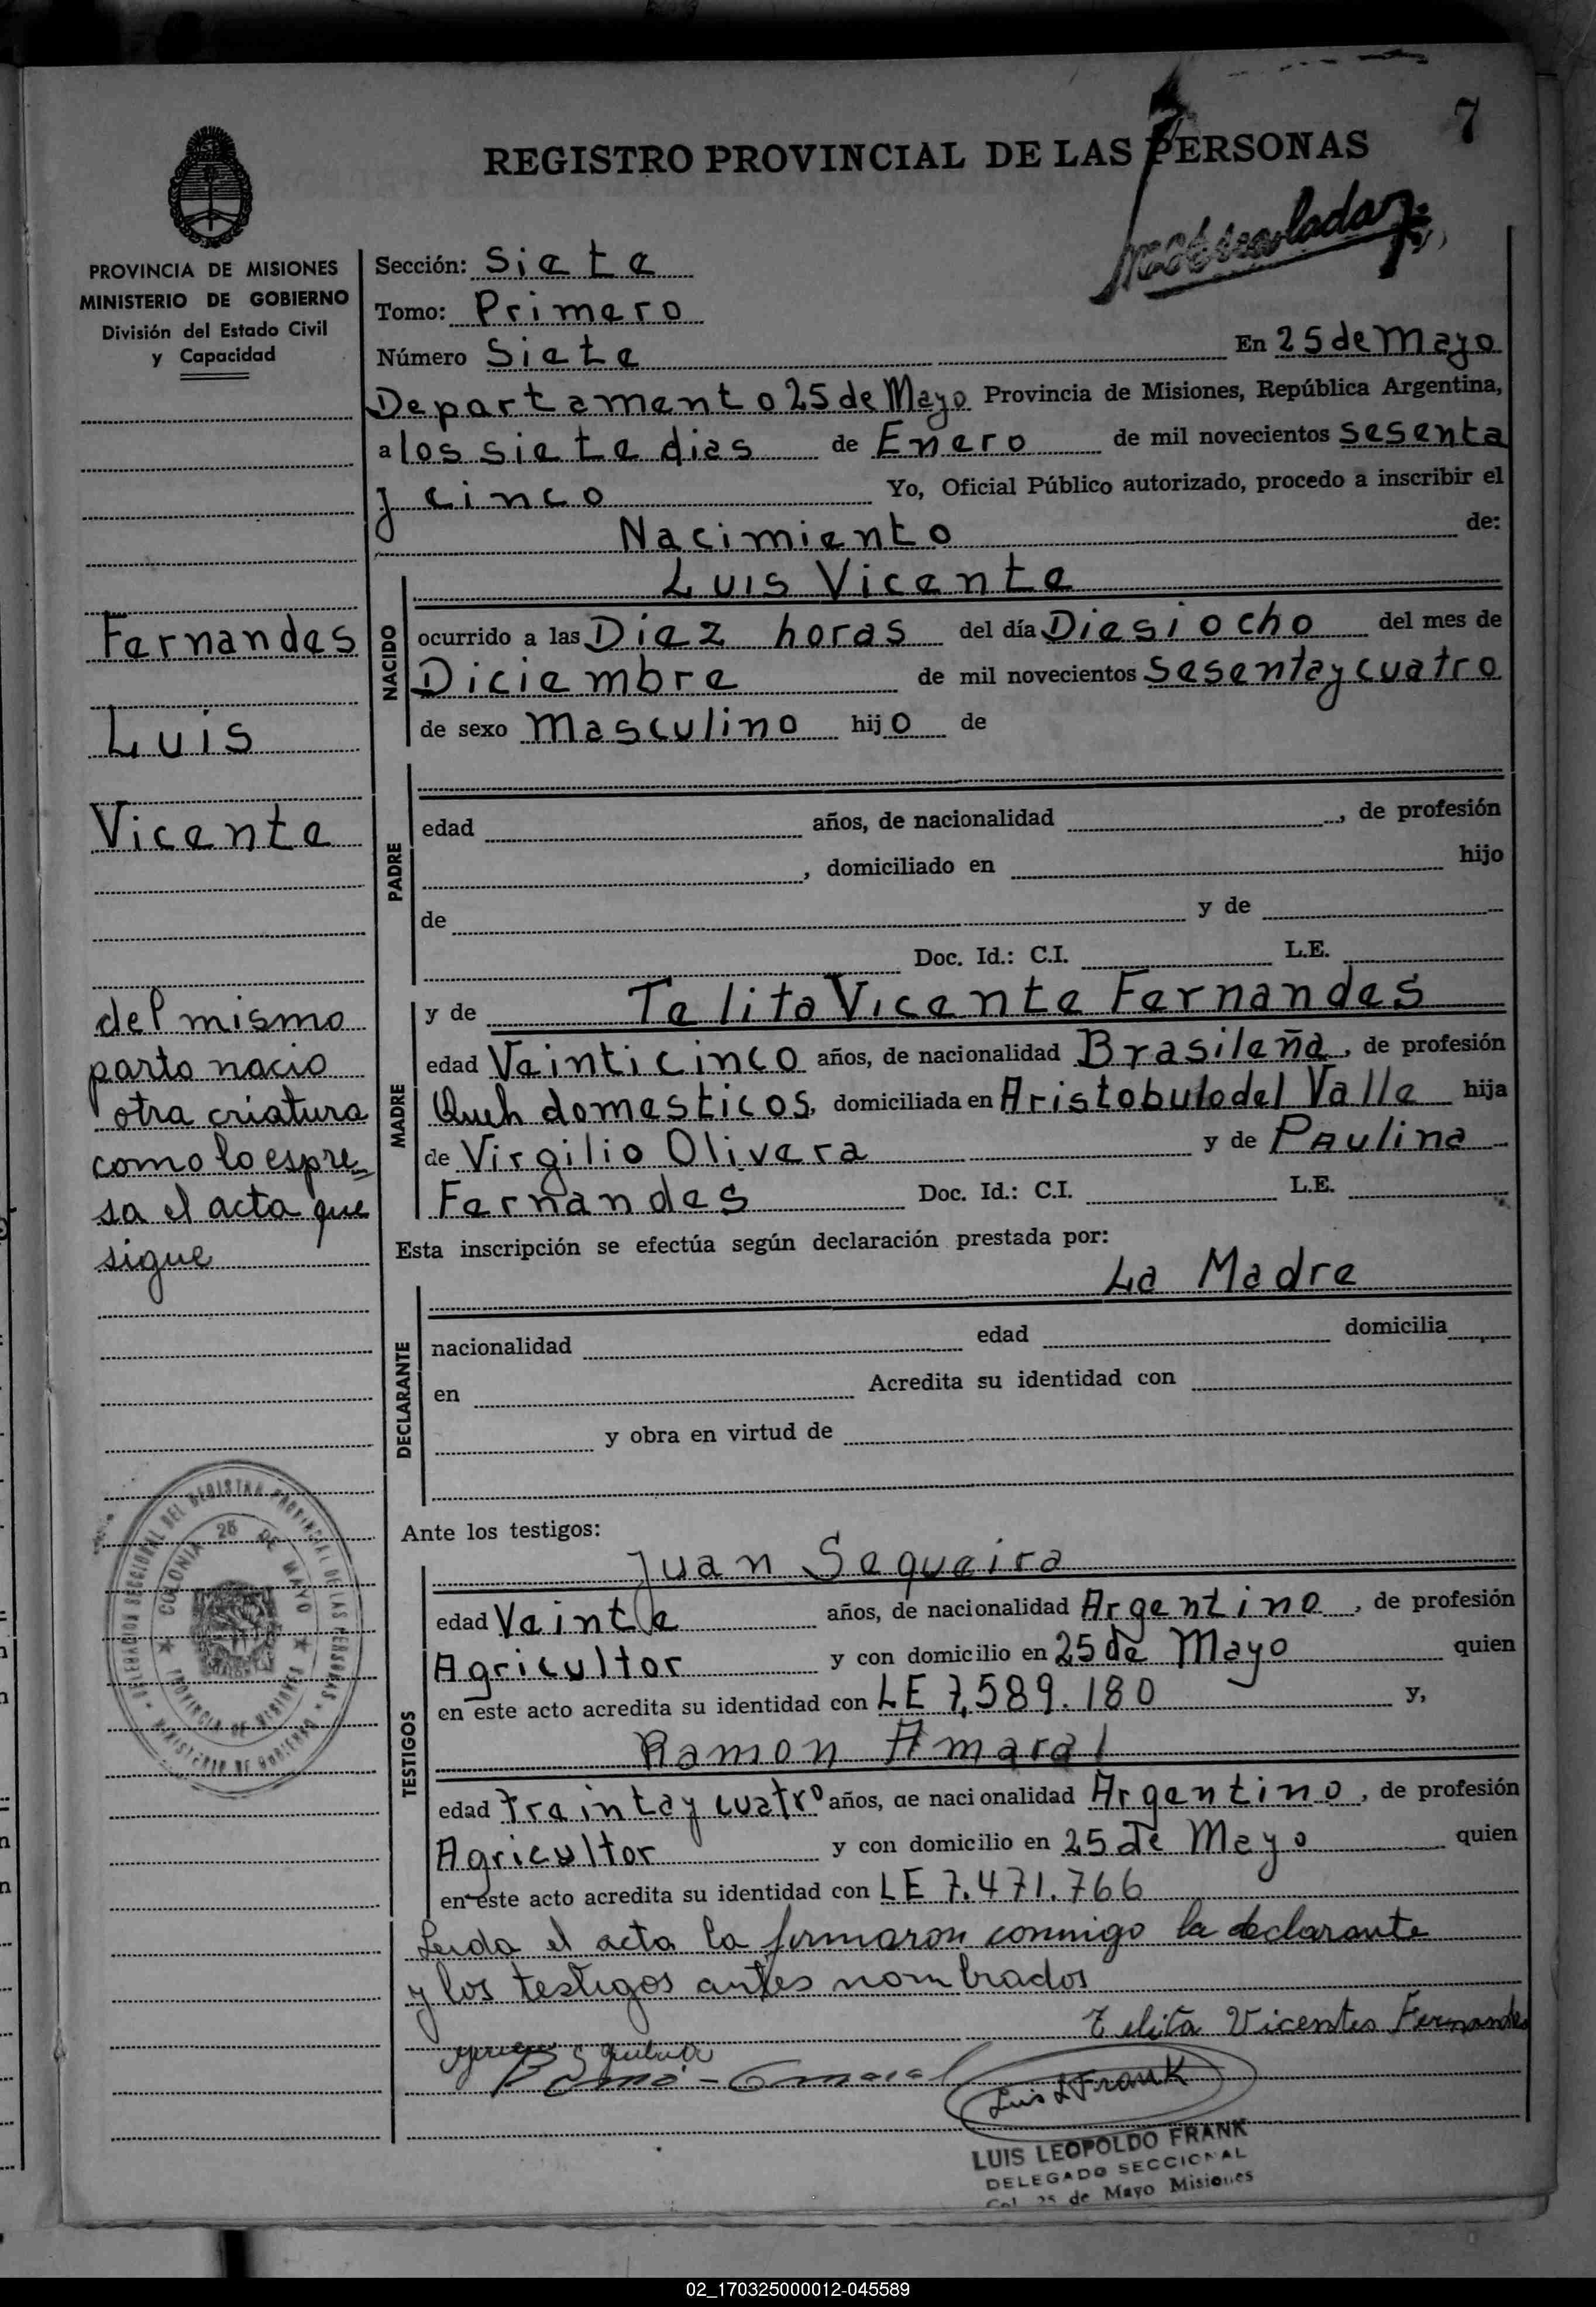 7
REGISTRO PROVINCIAL DE LAS PERSONAS
PROVINCIA DE MISIONES
MINISTERIO DE GOBIERNO
División del Estado Civil
y Capacidad
Fernandes
Luis
Vicente
del mismo
parto nacio
otra criatura
como lo espre_
sa el acta que
sigue
Sección: Siete
Tomo: Primero
Número Siete En 25 de Mayo
Departamento 25 de Mayo Provincia de Misiones, República Argentina,
a los siete dias de Enero de mil novecientos sesenta
y cinco Yo, Oficial Público autorizado, procedo a inscribir el
Nacimiento de:
Luis Vicente
NACIDO
ocurrido a las Diez horas del día Diesiocho del mes de
Diciembre de mil novecientos Sesenta y cuatro
de sexo Masculino hijo de
PADRE
edad años, de nacionalidad , de profesión
, domiciliado en hijo
de y de
Doc. Id.: C.I. L.E.
MADRE
y de Telita Vicente Fernandes
edad Veinticinco años, de nacionalidad Brasileña, de profesión
domesticos, domiciliada en Aristobulo del Valle hija
de Virgilio Olivera y de Paulina
Fernandes Doc. Id.: C.I. L.E.
Esta inscripción se efectúa según declaración prestada por:
La Madre
DECLARANTE
nacionalidad edad domicilia
en Acredita su identidad con
y obra en virtud de
Ante los testigos:
Juan Sequeira
TESTIGOS
edad Veinte años, de nacionalidad Argentino, de profesión
Agricultor y con domicilio en 25 de Mayo quien
en este acto acredita su identidad con LE 7,589.180 y,
Ramon Amaral
edad Treinta y cuatro años, de nacionalidad Argentino, de profesión
Agricultor y con domicilio en 25 de Mayo quien
en este acto acredita su identidad con LE 7.471.766
Leida el acta la firmaron conmigo la declarante
y los testigos antes nombrados
Telita Vicentes Fernandes
Luis L Frank
LUIS LEOPOLDO FRANK
DELEGADO SECCIONAL
Col. 25 de Mayo Misiones
DELEGACION SECCIONAL DEL REGISTRO PROVINCIAL DE LAS PERSONAS
MINISTERIO DE GOBIERNO
COLONIA 25 DE MAYO
PROVINCIA DE MISIONES
02_170325000012-045589